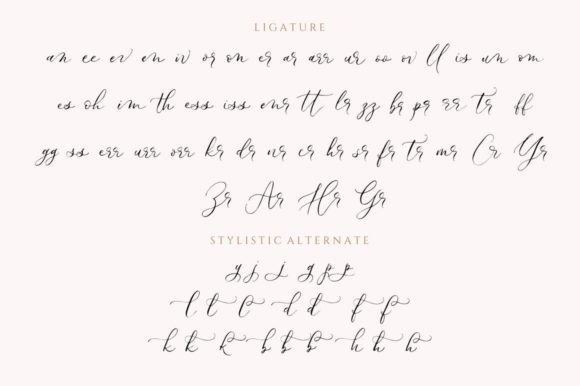 LIGATURE
an ee ev en iv or on er ar arr ur oo ov ll is un om
es oh im th ess iss enr tt lr zz br pr rr tr ff
gg ss err urr orr kr dr nr cr hr sr fr tr mr Cr Yr
Zr Ar Hr Gr
STYLISTIC ALTERNATE
y j j g
l t l d d f f
k k k b b b h h h